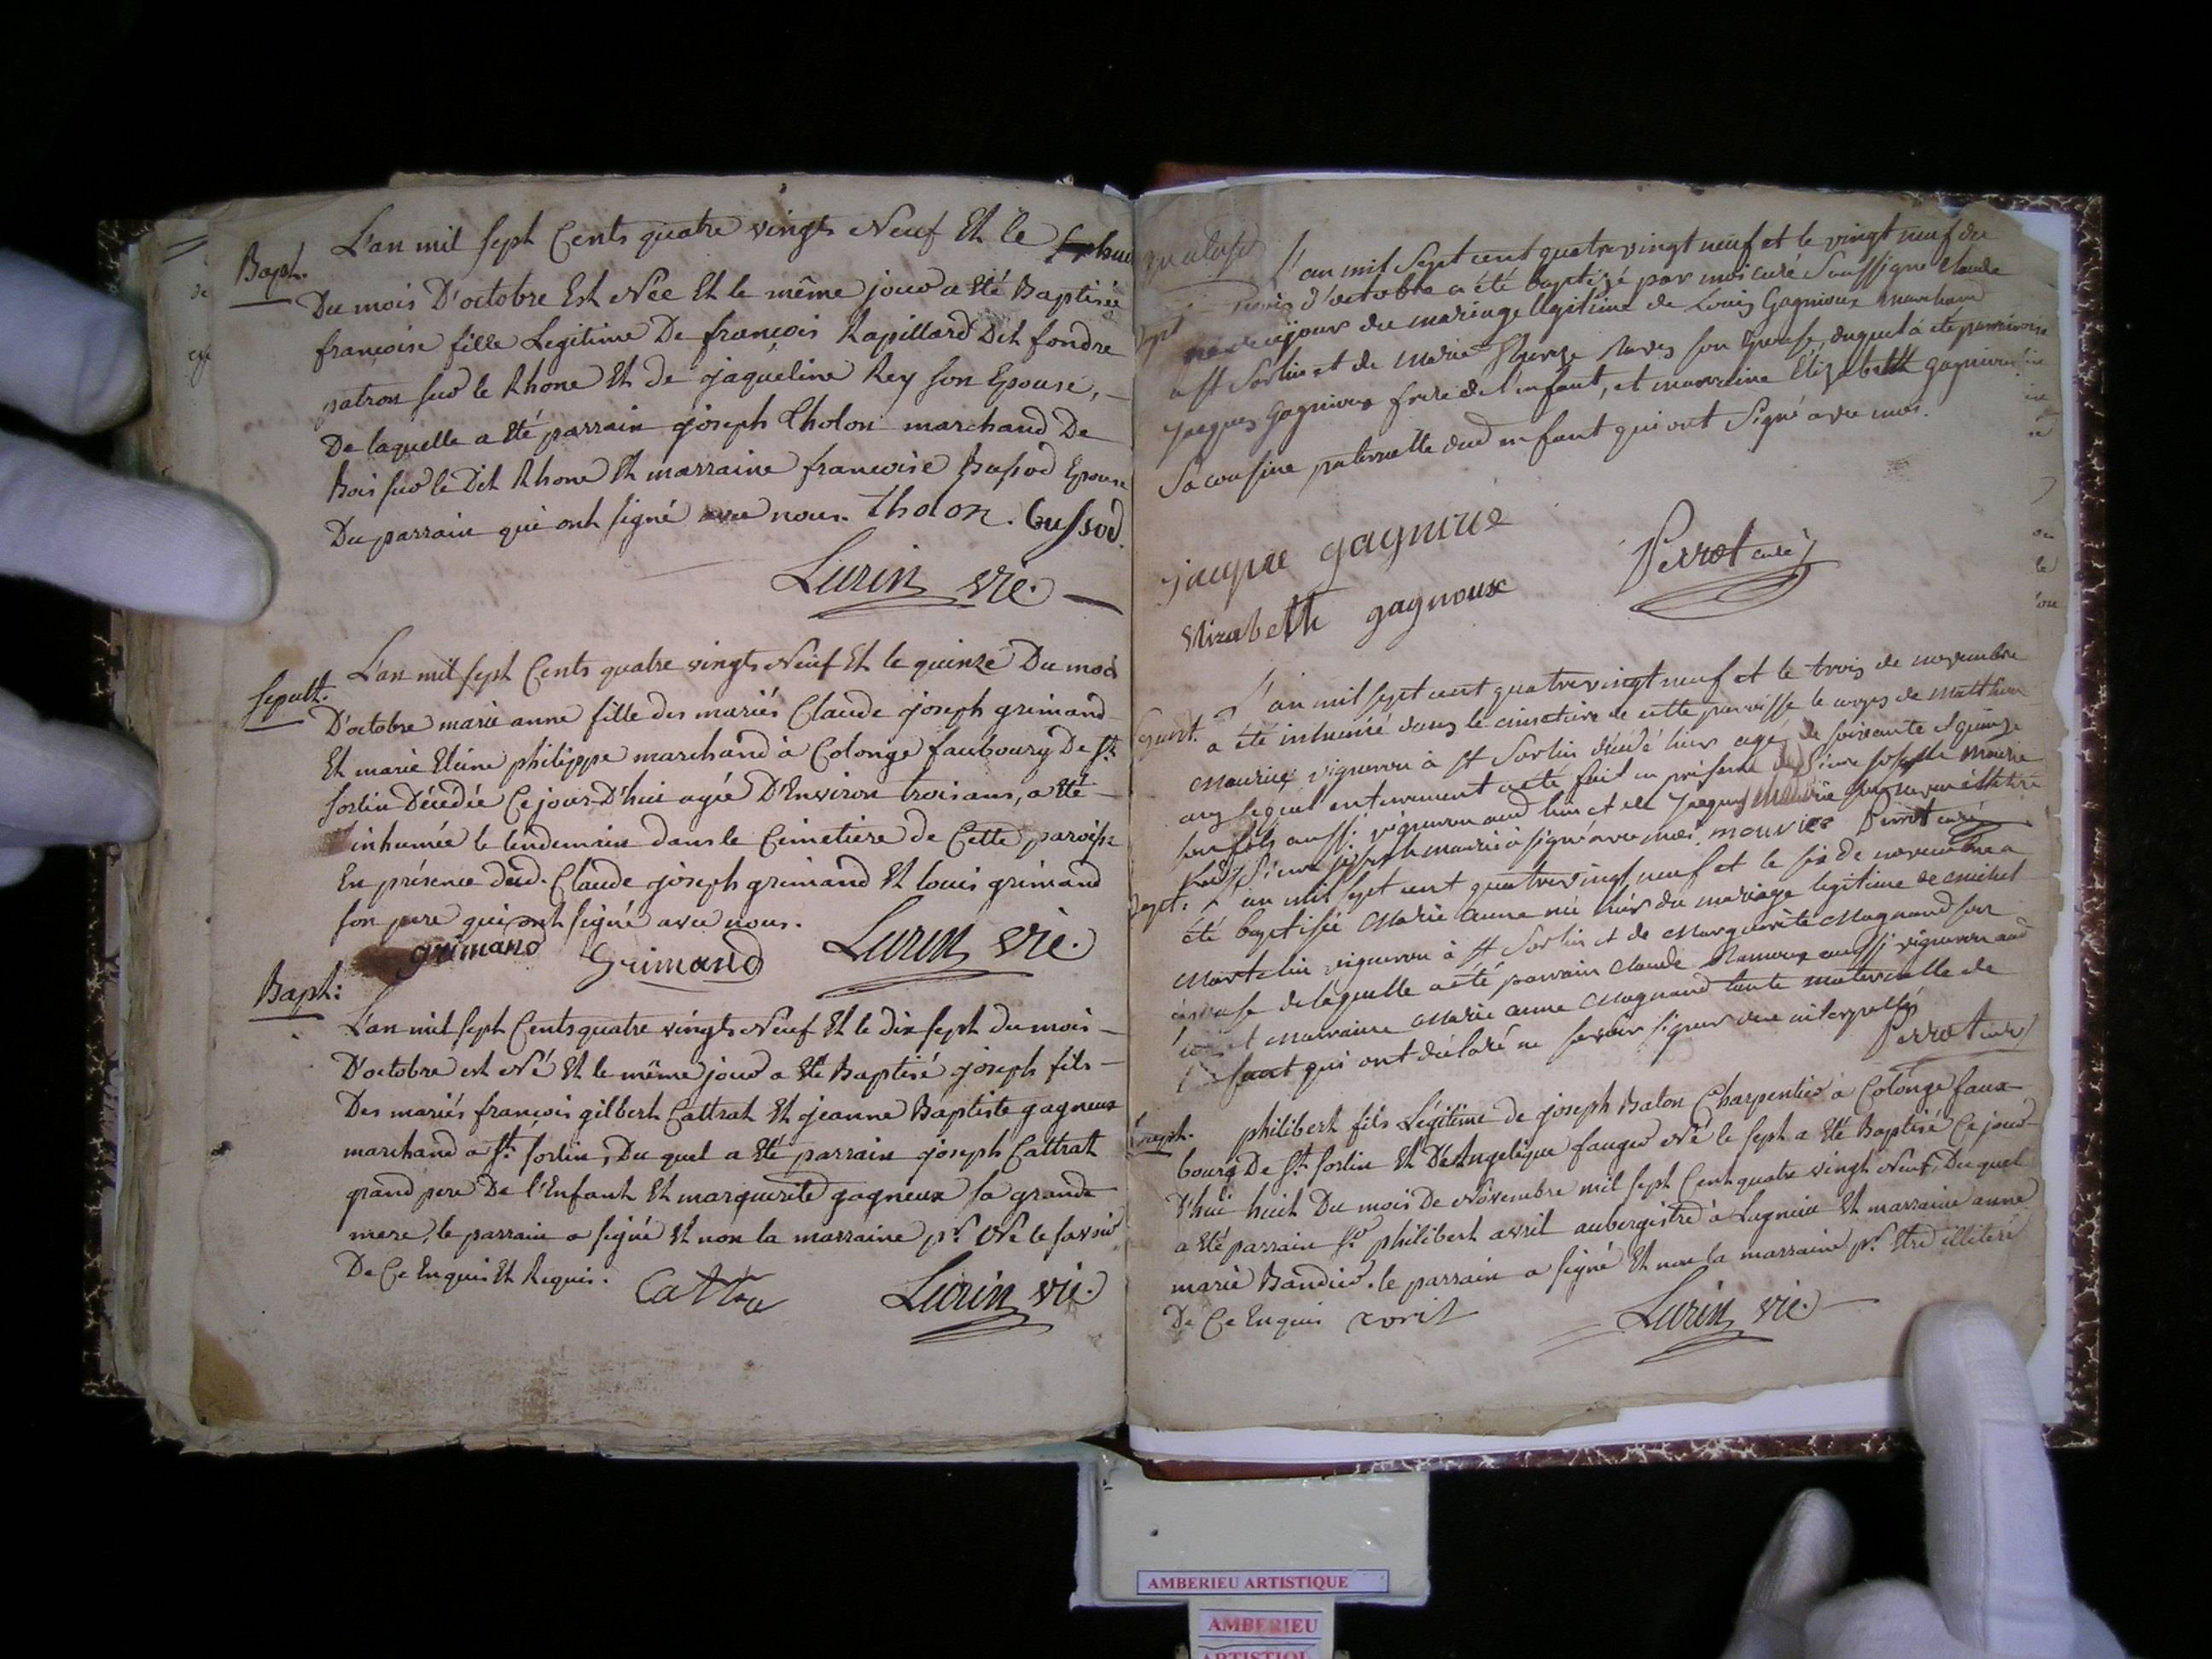 Bapt.
L'an mil sept Cents quatre vingts Neuf Et le
Du mois D'octobre Est Née Et le même jour a Eté Baptisée
françoise fille Legitime De françois Rapillard Dit fondre
patron sur le Rhone Et de jaqueline Rey son Epouse,
De laquelle a Eté parrain joseph Tholon marchand De
Bois sur le Dit Rhone Et marraine francoise Bussod Epouse
Du parrain qui ont signé avec nous. tholon. bussod.
Lurin vic.
Sepult.
L'an mil sept Cents quatre vingts Neuf Et le quinze Du mois
D'octobre marie anne fille des mariés Claude joseph grimand
Et marie philippe marchand à Colonge faubourg De St.
sorlin Décédée Ce jour D'hui agée D'Environ trois ans, a Eté
inhumée le lendemain dans le Cimetiere de Cette paroisse
En présence dud. Claude joseph grimand Et louis grimand
son pere qui ont signé avec nous.
grimand Grimand Lurin vic.
Bapt:
L'an mil sept Cents quatre vingts Neuf Et le dix sept du mois
D'octobre est Né Et le même jour a Eté Baptisé joseph fils
Des mariés françois gilbert Cattrat Et jeanne Baptiste gagneux
marchand a St. sorlin, Du quel a Eté parrain joseph Cattrat
grand pere De l'Enfant Et marguerite gagneux sa grande
mere, le parrain a signé Et non la marraine pr. Ne le savoir
De Ce Enquis Et Requis.
Lurin vic.
L'an mil sept cent quatre vingt neuf et le vingt neuf du
mois d'octobre a été baptizé par moi curé soussigné Claude
né ce jour du mariage légitime de Louis Gagnioux marchand
a St Sorlin et de Marie son Epouse, duquel a été parrain
Jacques Gagnioux frere de l'enfant, et marraine Elizabeth gagnioux
Sa cousine paternelle dud enfant qui ont Signé avec moi.
jacque gagnioux
Elizabeth gagnoux
Perrot curé
L'an mil sept cent quatre vingt neuf et le trois de novembre
a été inhumé dans le cimetiere de cette parroisse le corps de Matthieu
Maurier vigneron à St Sorlin décédé hier agé de soixante et quinze
ans lequel enterrement a été fait en présence de Pierre joseph
son fils aussi vigneron aud lieu et de Jacques
Pierre joseph a signé avec moi. mouvier Perrot curé
Bapt. L'an mil sept cent quatre vingt neuf et le six de novembre a
été baptisée Marie Anne née hier du mariage legitime de Michel
Martelin vigneron à St Sorlin et de Marguerite Magnand son
épouse de laquelle a été parrain Claude aussi vigneron aud
lieu et marraine Marie Anne Magnand tante maternelle de
l'enfant qui ont déclaré ne savoir signer de ce interpellés
Perrot curé
Bapt.
philibert fils Légitime de joseph Balon Charpentier à Colonge faux
bourg De St. sorlin Et D'Angelique fauger Né le sept a Eté Baptisé Ce jour
D'hui huit Du mois De Novembre mil sept Cent quatre vingt Neuf, Du quel
a Eté parrain Sr. philibert avril aubergiste à Lagnieu Et marraine anne
marie Bandier. le parrain a signé Et non la marraine pr. Etre illitéré
De Ce Enquis avril
Lurin vic.
AMBERIEU ARTISTIQUE
AMBERIEU
ARTISTIQUE